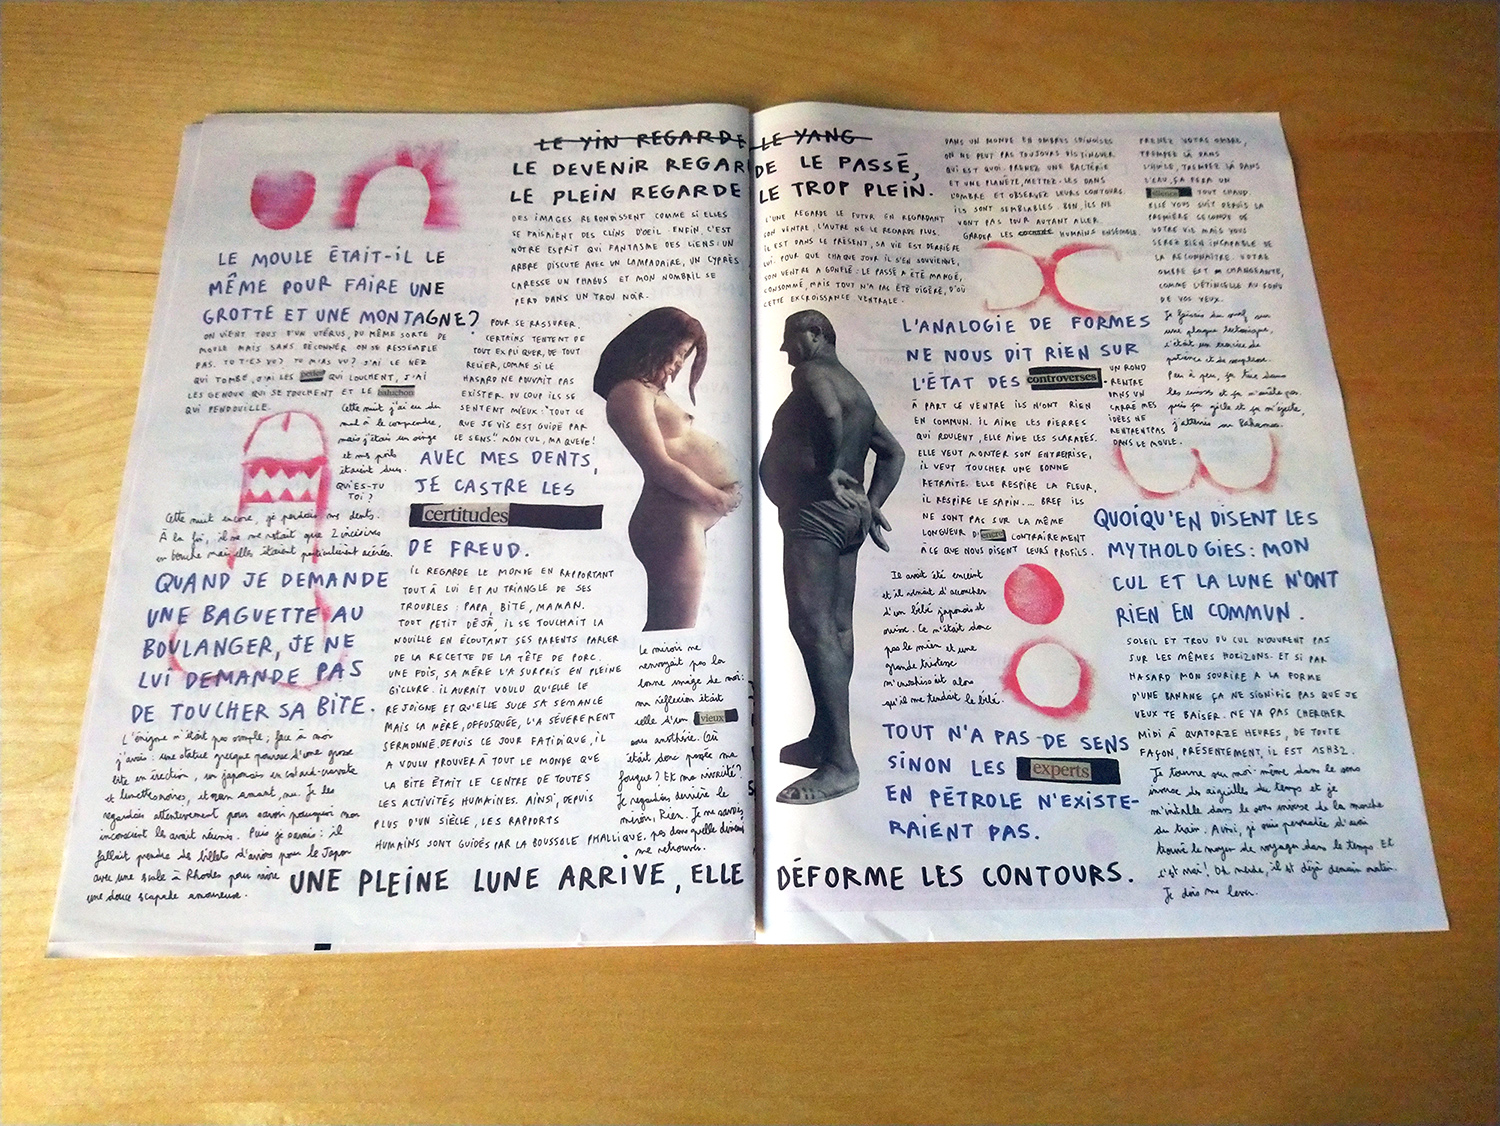 LE YIN REGARDE LE YANG
LE DEVENIR REGARDE LE PASSÉ,
LE PLEIN REGARDE LE TROP PLEIN.
DES IMAGES REBONDISSENT COMME SI ELLES
SE FAISAIENT DES CLINS D'OEIL. ENFIN, C'EST
NOTRE ESPRIT QUI FANTASME DES LIENS: UN
ARBRE DISCUTE AVEC UN LAMPADAIRE, UN CYPRÈS
CARESSE UN PHARUS ET MON NOMBRIL SE
PERD DANS UN TROU NOIR.
LE MOULE ÉTAIT-IL LE
MÊME POUR FAIRE UNE
GROTTE ET UNE MONTAGNE?
ON VIENT TOUS D'UN UTÉRUS, DU MÊME SORTE DE
MOULE MAIS SANS DÉCONNER ON SE RESSEMBLE
PAS. TU T'ES VU? TU M'AS VU? J'AI LE NEZ
QUI TOMBE, J'AI LES QUI LOUCHENT, J'AI
LES GENOUX QUI SE TOUCHENT ET LE baluchon
QUI PENDOUILLE.
Cette nuit j'ai eu du
mal à le comprendre,
mais j'étais un singe
et mes poils
étaient durs.
QUI ES-TU
TOI?
Cette nuit encore, je perdais mes dents.
À la fin, il ne me restait que 2 incisives
en bouche mais elles étaient particulièrement acérées.
QUAND JE DEMANDE
UNE BAGUETTE AU
BOULANGER, JE NE
LUI DEMANDE PAS
DE TOUCHER SA BITE.
L'énigme n'était pas simple; face à moi
j'avais: une statue grecque pourvue d'une grosse
bite en érection, un japonais en costard-cravate
et lunettes noires, et mon amant, nu. Je les
regardais attentivement pour savoir pourquoi mon
inconscient les avait réunis. Puis je savais: il
fallait prendre des billets d'avions pour le Japon
avec une escale à Rhodes pour vivre
une douce escapade amoureuse.
POUR SE RASSURER,
CERTAINS TENTENT DE
TOUT EXPLIQUER, DE TOUT
RELIER, COMME SI LE
HASARD NE POUVAIT PAS
EXISTER. DU COUP ILS SE
SENTENT MIEUX: "TOUT CE
QUE JE VIS EST GUIDÉ PAR
LE SENS" MON CUL, MA QUEUE!
AVEC MES DENTS,
JE CASTRE LES
certitudes
DE FREUD.
IL REGARDE LE MONDE EN RAPPORTANT
TOUT À LUI ET AU TRIANGLE DE SES
TROUBLES: PAPA, BITE, MAMAN.
TOUT PETIT DÉJÀ, IL SE TOUCHAIT LA
NOUILLE EN ÉCOUTANT SES PARENTS PARLER
DE LA RECETTE DE LA TÊTE DE PORC.
UNE FOIS, SA MÈRE L'A SURPRIS EN PLEINE
GICLURE. IL AURAIT VOULU QU'ELLE LE
REJOIGNE ET QU'ELLE SUCE SA SEMENCE
MAIS LA MÈRE, OFFUSQUÉE, L'A SÉVÈREMENT
SERMONNÉ. DEPUIS CE JOUR FATIDIQUE, IL
A VOULU PROUVER À TOUT LE MONDE QUE
LA BITE ÉTAIT LE CENTRE DE TOUTES
LES ACTIVITÉS HUMAINES. AINSI, DEPUIS
PLUS D'UN SIÈCLE, LES RAPPORTS
HUMAINS SONT GUIDÉS PAR LA BOUSSOLE PHALLIQUE.
Le miroir me
renvoyait pas la
bonne image de moi:
ma réflexion était
celle d'un vieux
sans
était donc passée ma
fougue? Et ma
Je regardais derrière le
miroir, Rien. Je ne savais
pas dans quelle direction
me retrouver.
UNE PLEINE LUNE ARRIVE, ELLE DÉFORME LES CONTOURS.
L'UNE REGARDE LE FUTUR EN REGARDANT
SON VENTRE, L'AUTRE NE LE REGARDE PLUS.
IL EST DANS LE PRÉSENT, SA VIE EST DERRIÈRE
LUI. POUR QUE CHAQUE JOUR IL S'EN SOUVIENNE,
SON VENTRE A GONFLÉ: LE PASSÉ A ÉTÉ MANGÉ,
CONSOMMÉ, MAIS TOUT N'A PAS ÉTÉ DIGÉRÉ, D'OÙ
CETTE EXCROISSANCE VENTRALE.
DANS UN MONDE EN OMBRES CHINOISES
ON NE PEUT PAS TOUJOURS DISTINGUER
QUI EST QUOI. PRENEZ UNE BACTÉRIE
ET UNE PLANÈTE, METTEZ-LES DANS
L'OMBRE ET OBSERVEZ LEURS CONTOURS.
ILS SONT SEMBLABLES. BON, ILS NE
VONT PAS POUR AUTANT ALLER
GARDER LES COCHONS HUMAINS ENSEMBLE.
PRENEZ VOTRE OMBRE,
TREMPEZ LÀ DANS
L'HUILE, TREMPEZ LÀ DANS
L'EAU, ÇA FERA UN
silence TOUT CHAUD.
ELLE VOUS SUIT DEPUIS LA
PREMIÈRE SECONDE DE
VOTRE VIE MAIS VOUS
SEREZ BIEN INCAPABLE DE
LA RECONNAÎTRE. VOTRE
OMBRE EST CHANGEANTE,
COMME L'ÉTINCELLE AU FOND
DE VOS YEUX.
L'ANALOGIE DE FORMES
NE NOUS DIT RIEN SUR
L'ÉTAT DES controverses.
À PART CE VENTRE ILS N'ONT RIEN
EN COMMUN. IL AIME LES PIERRES
QUI ROULENT, ELLE AIME LES SCARABÉS.
ELLE VEUT MONTER SON ENTREPRISE,
IL VEUT TOUCHER UNE BONNE
RETRAITE. ELLE RESPIRE LA FLEUR,
IL RESPIRE LE SAPIN... BREF ILS
NE SONT PAS SUR LA MÊME
LONGUEUR D'encre CONTRAIREMENT
À CE QUE NOUS DISENT LEURS PROFILS.
UN ROND
RENTRE
DANS UN
CARRÉ MES
IDÉES NE
RENTRENT PAS
DANS LE MOULE.
Je faisais du surf sur
une plaque tectonique,
c'était un exercice de
patience et de souplesse.
Peu à peu,
j'atterris au Bahamas.
QUOIQU'EN DISENT LES
MYTHOLOGIES: MON
CUL ET LA LUNE N'ONT
RIEN EN COMMUN.
SOLEIL ET TROU DU CUL N'OUVRENT PAS
SUR LES MÊMES HORIZONS. ET SI PAR
HASARD MON SOURIRE A LA FORME
D'UNE BANANE ÇA NE SIGNIFIE PAS QUE JE
VEUX TE BAISER. NE VA PAS CHERCHER
MIDI À QUATORZE HEURES, DE TOUTE
FAÇON, PRÉSENTEMENT, IL EST 15H32.
Je tourne sur moi-même dans le sens
inverse des aiguilles du temps et je
m'installe dans le sens inverse de la marche
du train. Ainsi, je suis persuadée d'avoir
trouvé le moyen de voyager dans le temps. Et
c'est moi! Oh merde, il est déjà demain matin.
Je dois me lever.
Il avait été enceint
et il venait d'accoucher
d'un bébé japonais et
suisse. Ce n'était donc
pas le mien et une
grande tristesse
m'envahissait alors
qu'il me tendait le bébé.
TOUT N'A PAS DE SENS
SINON LES experts
EN PÉTROLE N'EXISTE-
RAIENT PAS.